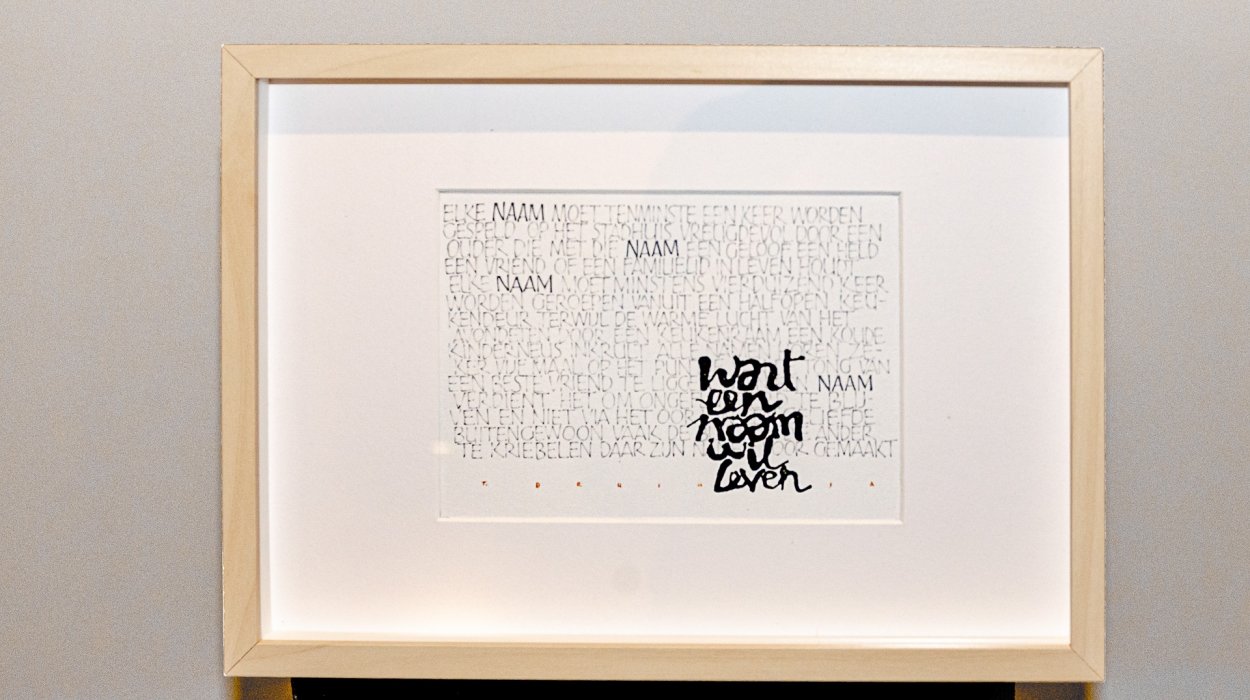 ELKE NAAM MOET TENMINSTE EEN KEER WORDEN
GESPELD OP HET STADHUIS VREUGDEVOL DOOR EEN
OUDER DIE MET DIE NAAM EEN GELOOF EEN HELD
EEN VRIEND OF EEN FAMILIELID IN LEVEN HOUDT
ELKE NAAM MOET MINSTENS VIERDUIZEND KEER
WORDEN GEROEPEN VANUIT EEN HALFOPEN KEU-
KENDEUR TERWIJL DE WARME LUCHT VAN HET
AVONDETEN DOOR EEN KEUKENRAAM EEN KOUDE
KINDERNEUS INKRULT
OP HET TONG VAN
EEN BESTE VRIEND TE NAAM
VERDIENT HET OM BLIJ-
VEN EN NIET VIA HET LIEFDE
BUITENGEWOON VAAK ANDER
TE KRIEBELEN DAAR ZIJN GEMAAKT
want
een
naam
wil
leven